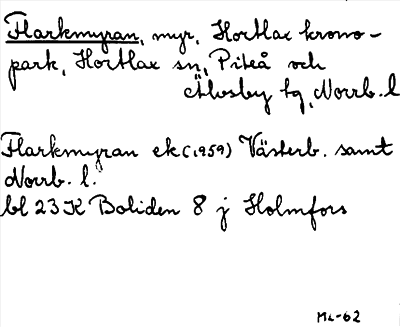 Flarkmyran, myr, Hortlax krono-
park, Hortlax sn, Piteå och
Älvsby tg, Norrb. l
Flarkmyran ek (1959) Västerb. samt
Norrb. l.
bl 23 K Boliden 8 j Holmfors
ML-62